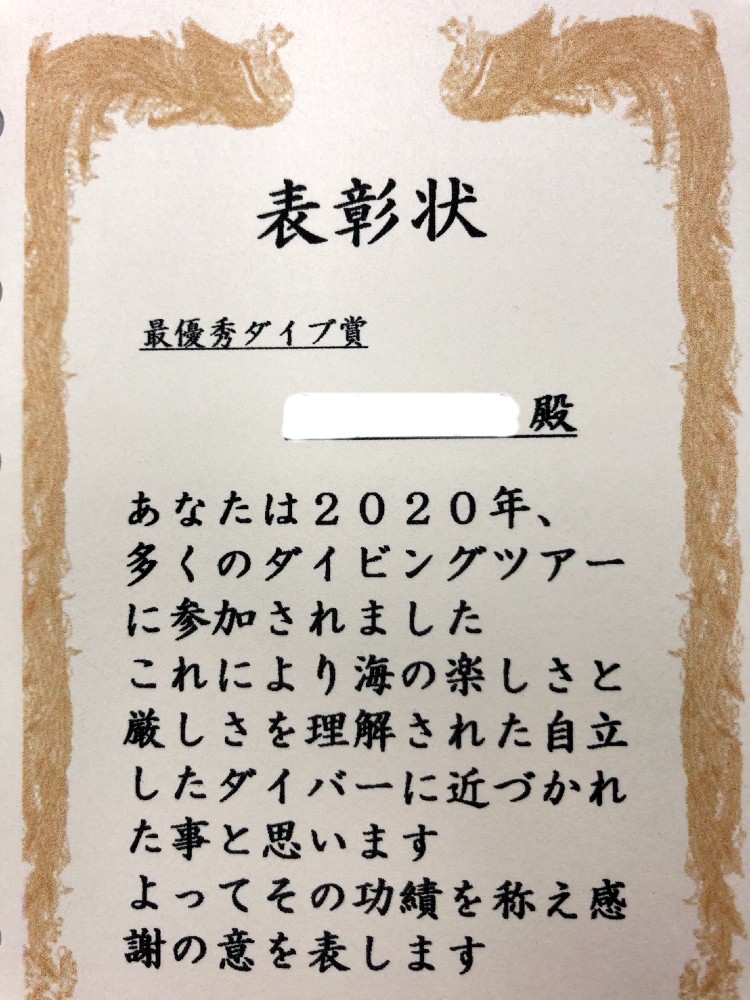 表彰状
最優秀ダイブ賞
殿
あなたは２０２０年、
多くのダイビングツアー
に参加されました
これにより海の楽しさと
厳しさを理解された自立
したダイバーに近づかれ
た事と思います
よってその功績を称え感
謝の意を表します